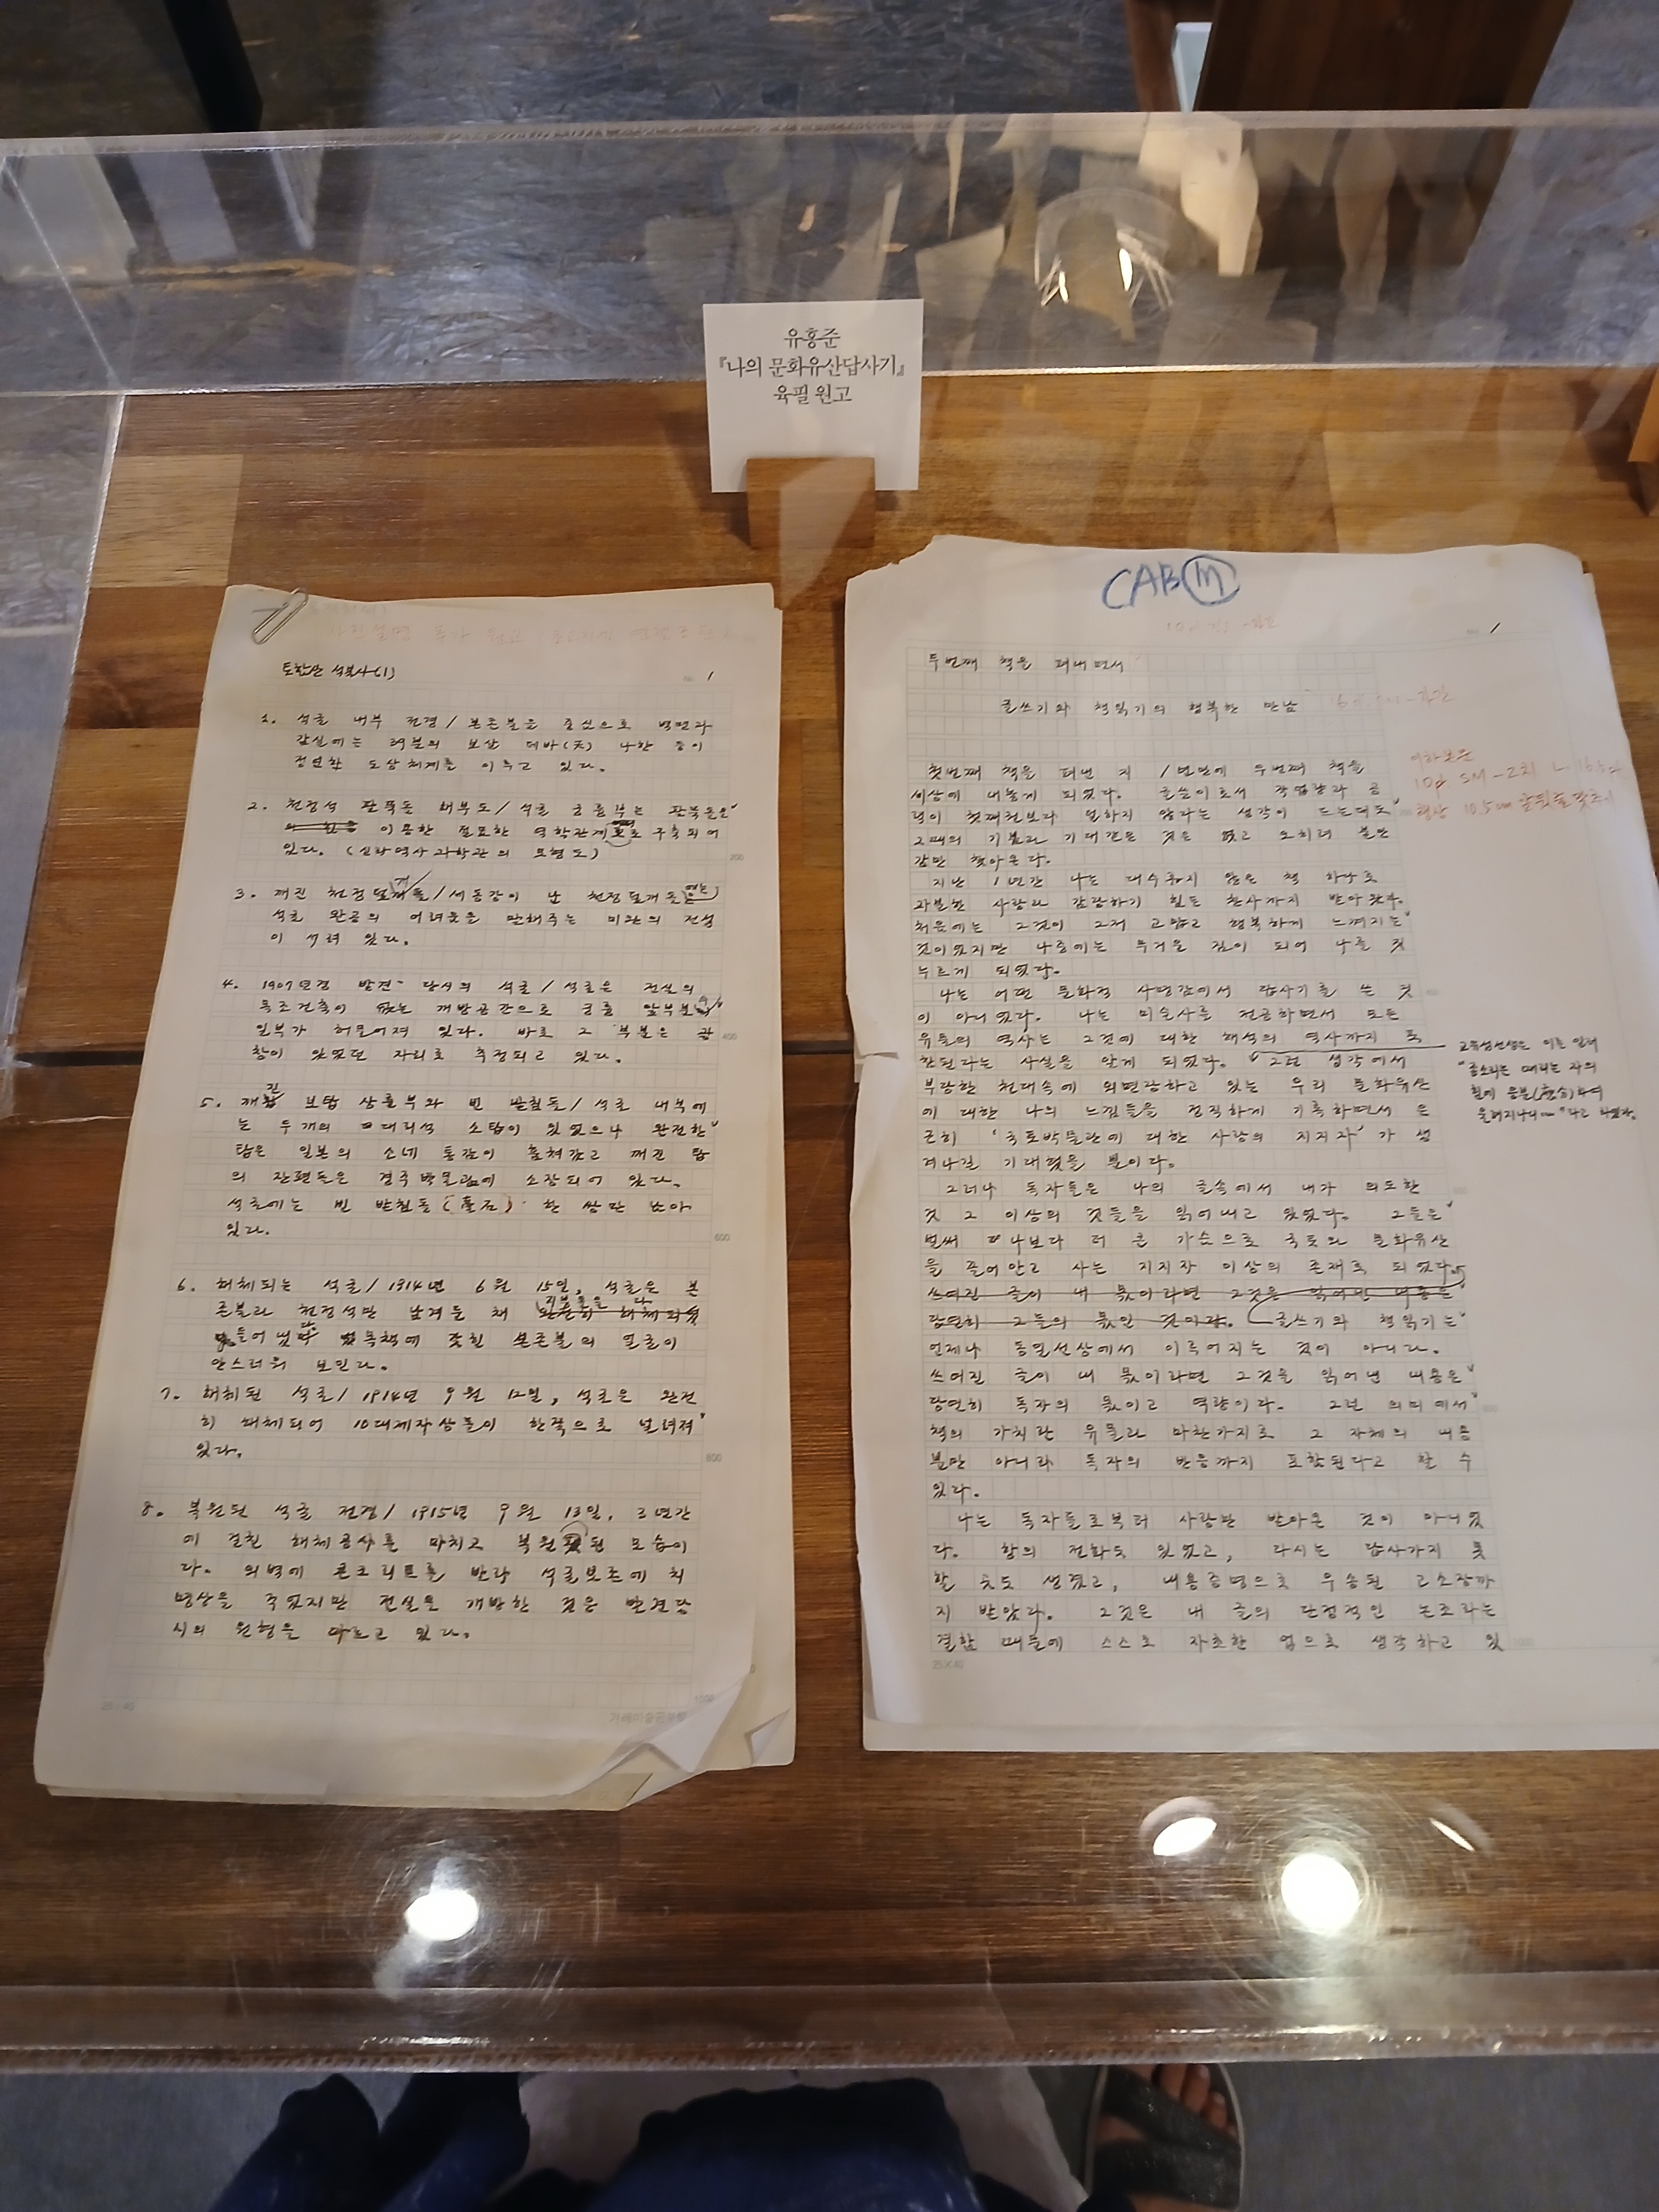 유홍준
『나의 문화유산답사기』
육필 원고
토함산 석불사(1)
1
1. 석굴 내부 전경/본존불을 중심으로 벽면과
감실에는 39분의 보살 데바(天) 나한 등이
정연한 도상체계를 이루고 있다.
2. 천정석 판뚝돌 해부도/석굴 궁륭부는 판뚝돌은
이 묘한 절묘한 역학관계로 구축되어
있다. (신라역사과학관의 모형도)
200
3. 깨진 천정덮개돌/세동강이 난 천정덮개돌에는
석굴 완공의 어려움을 말해주는 미완의 전설
이 서려 있다.
4. 1907년경 발견 당시의 석굴/석굴은 전실의
목조건축이 없는 개방공간으로 궁륭 앞부분의
일부가 허물어져 있다. 바로 그 부분은 광
창이 있었던 자리로 추정되고 있다.
400
5. 깨진 보탑 상륜부와 빈 받침돌/석굴 내부에
는 두개의 대리석 소탑이 있었으나 완전한
탑은 일본의 소네 통감이 훔쳐갔고 깨진 탑
의 잔편들은 경주박물관에 소장되어 있다.
석굴에는 빈 받침돌 한 쌍만 남아
있다.
600
6. 해체되는 석굴/1914년 6월 15일, 석굴은 본
존불과 천정석만 남겨둔 채 지붕돌을 다
들어냈다. 목책에 갖힌 본존불의 얼굴이
안스러워 보인다.
7. 해체된 석굴/1914년 9월 12일, 석굴은 완전
히 해체되어 10대제자상들이 한쪽으로 널려져
있다.
800
8. 복원된 석굴 전경/1915년 9월 13일, 3년간
에 걸친 해체공사를 마치고 복원된 모습이
다. 외벽에 콘크리트를 발라 석굴보존에 치
명상을 주었지만 전실을 개방한 것은 발견당
시의 원형을 따르고 있다.
25×40
1000
CAB m
1
두번째 책을 펴내면서
글쓰기와 책읽기의 행복한 만남
첫번째 책을 펴낸 지 1년만에 두번째 책을
세상에 내놓게 되었다. 글쓴이로서 작업량과 공
력이 첫째권보다 덜하지 않다는 생각이 드는데도
그때의 기쁨과 기대같은 것은 없고 오히려 불안
감만 찾아온다.
지난 1년간 나는 대수롭지 않은 책 하나로
과분한 사랑과 감당하기 힘든 찬사까지 받아왔다.
처음에는 그것이 그저 고맙고 행복하게 느껴지는
것이었지만 나중에는 무거운 짐이 되어 나를 짓
누르게 되었다.
나는 어떤 문화적 사명감에서 답사기를 쓴 것
이 아니었다. 나는 미술사를 전공하면서 모든
유물의 역사는 그것에 대한 해석의 역사까지 포
함된다는 사실을 알게 되었다. 그런 생각에서
부당한 천대속에 외면당하고 있는 우리 문화유산
에 대한 나의 느낌들을 정직하게 기록하면서 은
근히 '국토박물관에 대한 사랑의 지지자'가 생
겨나길 기대했을 뿐이다.
그러나 독자들은 나의 글속에서 내가 의도한
것 그 이상의 것들을 읽어내고 있었다. 그들은
벌써 나보다 더 큰 가슴으로 국토와 문화유산
을 끌어안고 사는 지지자 이상의 존재로 되었다.
쓰여진 글이 내 몫이라면 그것을 읽어낸 내용은
당연히 그들의 몫인 것이다. 글쓰기와 책읽기는
언제나 동일선상에서 이루어지는 것이 아니다.
쓰여진 글이 내 몫이라면 그것을 읽어낸 내용은
당연히 독자의 몫이고 역량이다. 그런 의미에서
책의 가치란 유물과 마찬가지로 그 자체의 내용
뿐만 아니라 독자의 반응까지 포함된다고 할 수
있다.
나는 독자들로부터 사랑만 받아온 것이 아니었
다. 항의 전화도 있었고, 다시는 답사가지 못
할 곳도 생겼고, 내용증명으로 우송된 고소장까
지 받았다. 그것은 내 글의 단정적인 논조라는
결함 때문에 스스로 자초한 업으로 생각하고 있
25×40
1000
고유섭선생은 이를 일러
"종소리는 때리는 자의
힘에 응분(應分)하여
울려지나니…"라고 하였다.